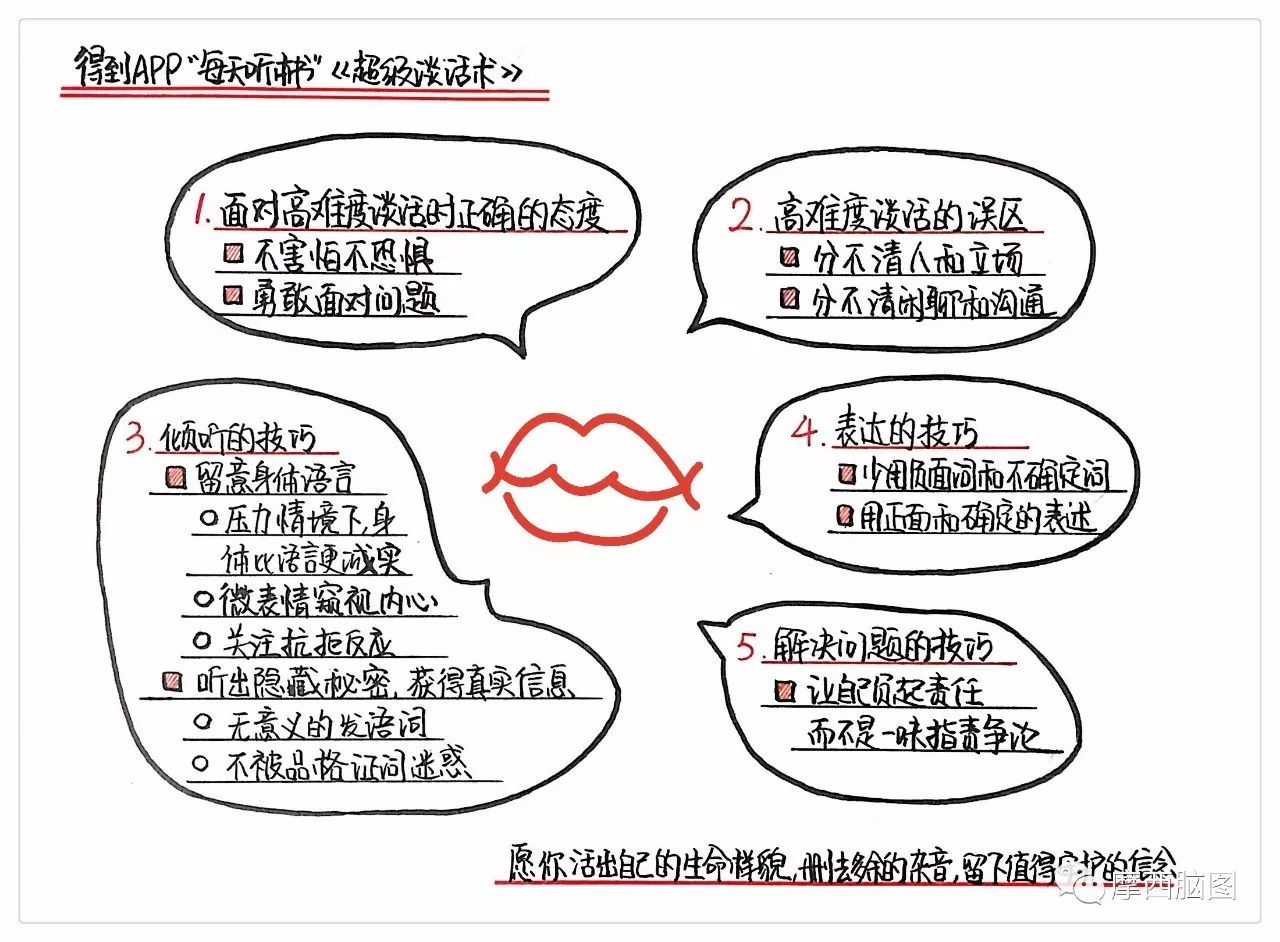 得到APP“每天听本书”《超级谈话术》
1. 面对高难度谈话时正确的态度
不害怕不恐惧
勇敢面对问题
2. 高难度谈话的误区
分不清人和立场
分不清闲聊和沟通
3. 倾听的技巧
留意身体语言
压力情境下,身
体比语言更诚实
微表情窥视内心
关注抗拒反应
听出隐藏秘密,获得真实信息
无意义的发语词
不被品格证词迷惑
4. 表达的技巧
少用负面词和不确定词
用正面和确定的表述
5. 解决问题的技巧
让自己负起责任
而不是一味指责争论
愿你活出自己的生命样貌,删去多余的杂音,留下值得守护的信念
摩西脑图